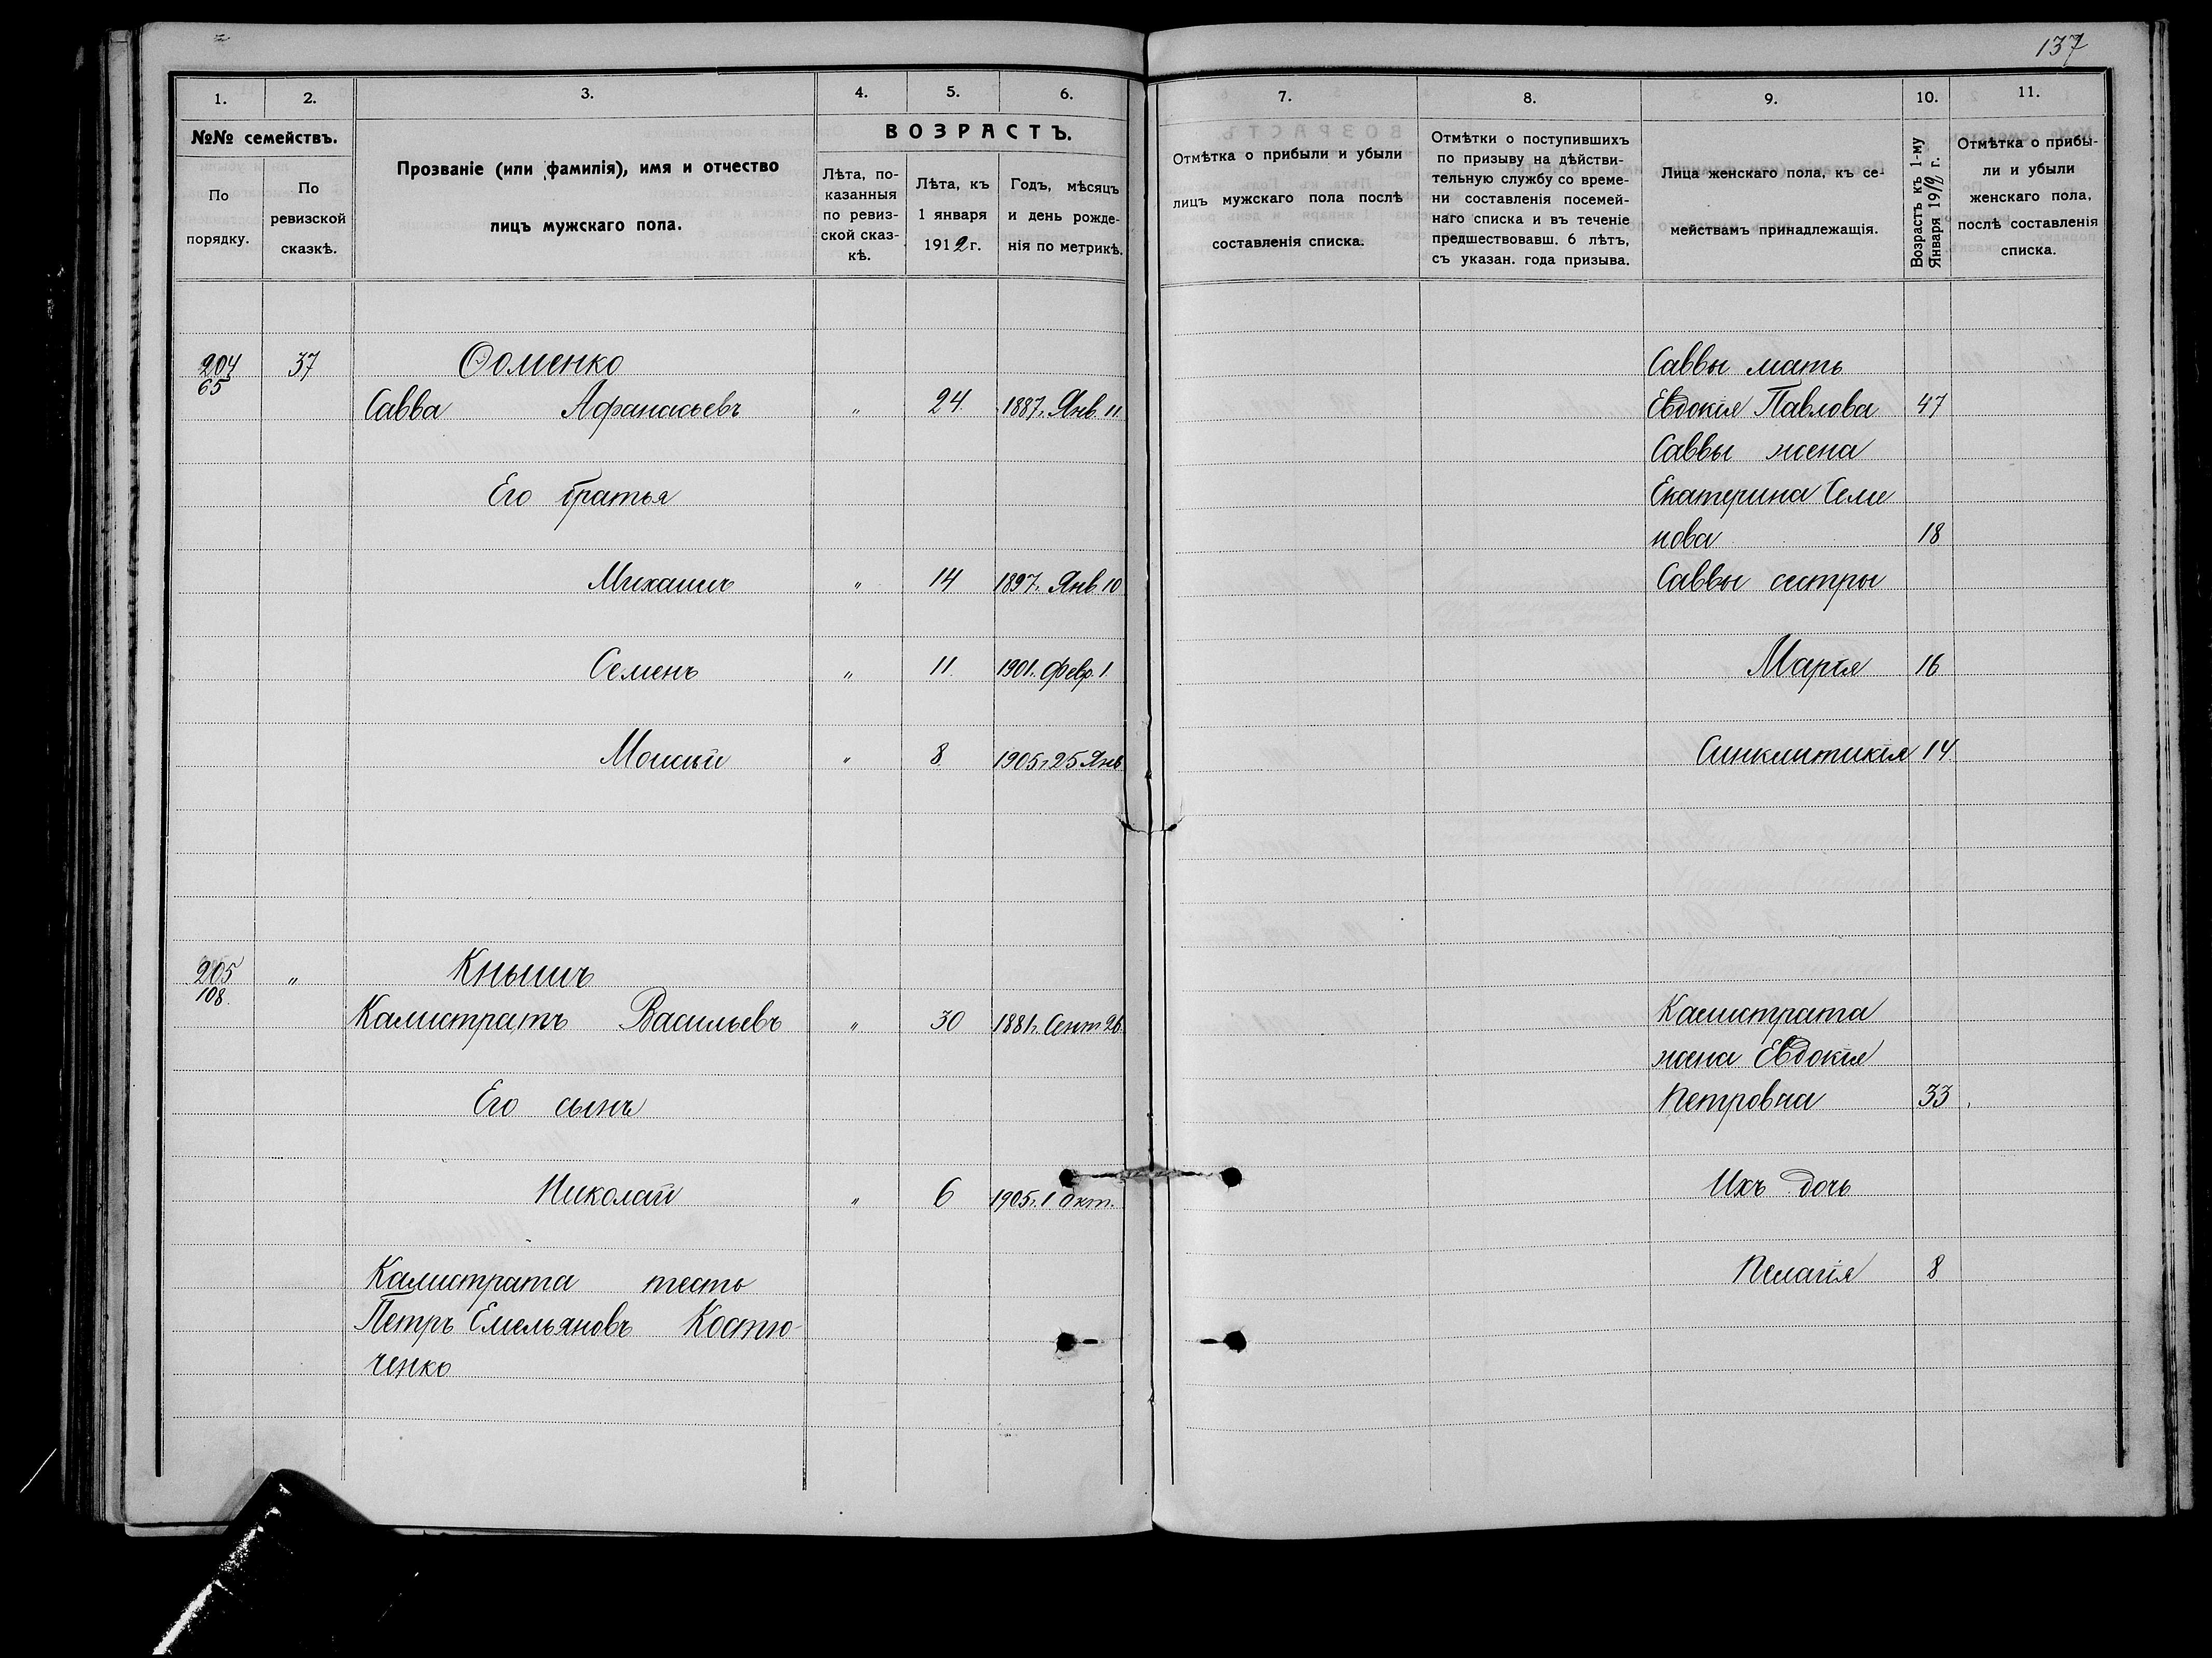 137
1. 2. 3. 4. 5. 6. 7. 8. 9. 10. 11.
№№ семействъ.
По порядку.
По ревизской сказкѣ.
Прозваніе (или фамилія), имя и отчество
лицъ мужскаго пола.
ВОЗРАСТЪ.
Лѣта, по-
казанныя
по ревиз-
ской сказ-
кѣ.
Лѣта, къ
1 января
1912 г.
Годъ, мѣсяцъ
и день рожде-
нія по метрикѣ.
Отмѣтка о прибыли и убыли
лицъ мужскаго пола послѣ
составленія списка.
Отмѣтки о поступившихъ
по призыву на дѣйстви-
тельную службу со време-
ни составленія посемей-
наго списка и въ теченіе
предшествовавш. 6 лѣтъ,
съ указан. года призыва.
Лица женскаго пола, къ се-
мействамъ принадлежащія.
Возрастъ къ 1-му
Января 1912 г.
Отмѣтка о прибы-
ли и убыли
женскаго пола,
послѣ составленія
списка.
204 37 Ѳоменко Саввы мать
65
Савва Афанасьевъ " 24. 1887г. Янв. 11 Евдокія Павлова 47
Саввы жена
Его братья Екатерина Семе
нова 18
Михаилъ " 14 1897г. Янв. 10 Саввы сестры
Семенъ " 11. 1901г. Февр. 1. Марія 16
Моисей " 8. 1905г. 25 Янв. Синклитикія 14.
205 " Кнышъ
108.
Калистратъ Васильевъ " 30 1881г. Сент 26. Калистрата
жена Евдокія
Его сынъ Петровна 33.
Николай " 6 1905г. 1 Окт. Ихъ дочь
Калистрата тесть Пелагія 8
Петръ Емельяновъ Костю-
ченко